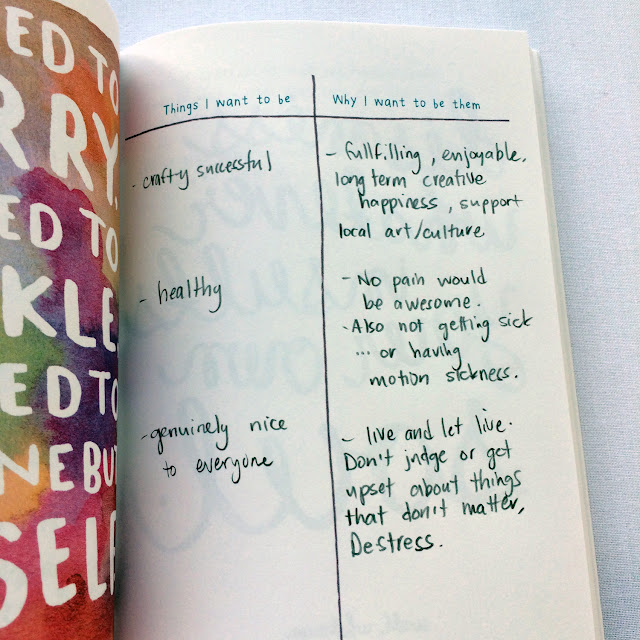 ED TO
RRY.
ED TO
KLE.
ED TO
NE BUT
SELF
Things I want to be
Why I want to be them
- crafty successful
- fullfilling, enjoyable,
long term creative
happiness, support
local art/culture
- healthy
- No pain would
be awesome.
- Also not getting sick
... or having
motion sickness.
- genuinely nice
to everyone
- live and let live.
Don't judge or get
upset about things
that don't matter,
Destress.